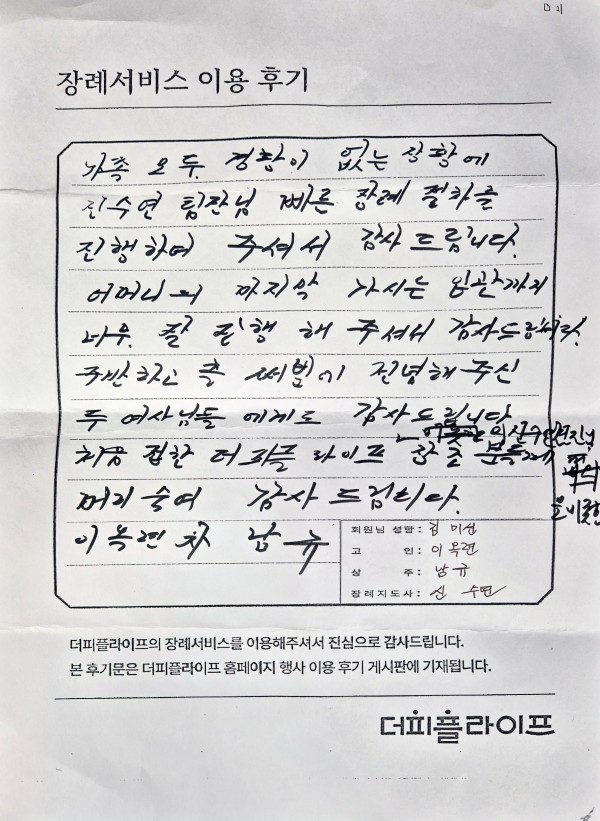 장례서비스 이용 후기
가족 모두 경황이 없는 상황에
신수연 팀장님 빠른 장례 절차를
진행하여 주셔서 감사드립니다.
어머니의 마지막 가시는 입관까지
너무 잘 진행해 주셔서 감사드립니다.
주방하고 홀 써빙에 전념해 주신
두 여사님들에게도 감사드립니다
처음 접한 더피플라이프 모든 분들께
신수연 팀장님
을 비롯한
머리숙여 감사드립니다.
이옥련 차남 규
회원님 성함: 김미선
고 인: 이옥련
상 주: 남규
장례지도사: 신수연
더피플라이프의 장례서비스를 이용해주셔서 진심으로 감사드립니다.
본 후기문은 더피플라이프 홈페이지 행사 이용 후기 게시판에 기재됩니다.
더피플라이프